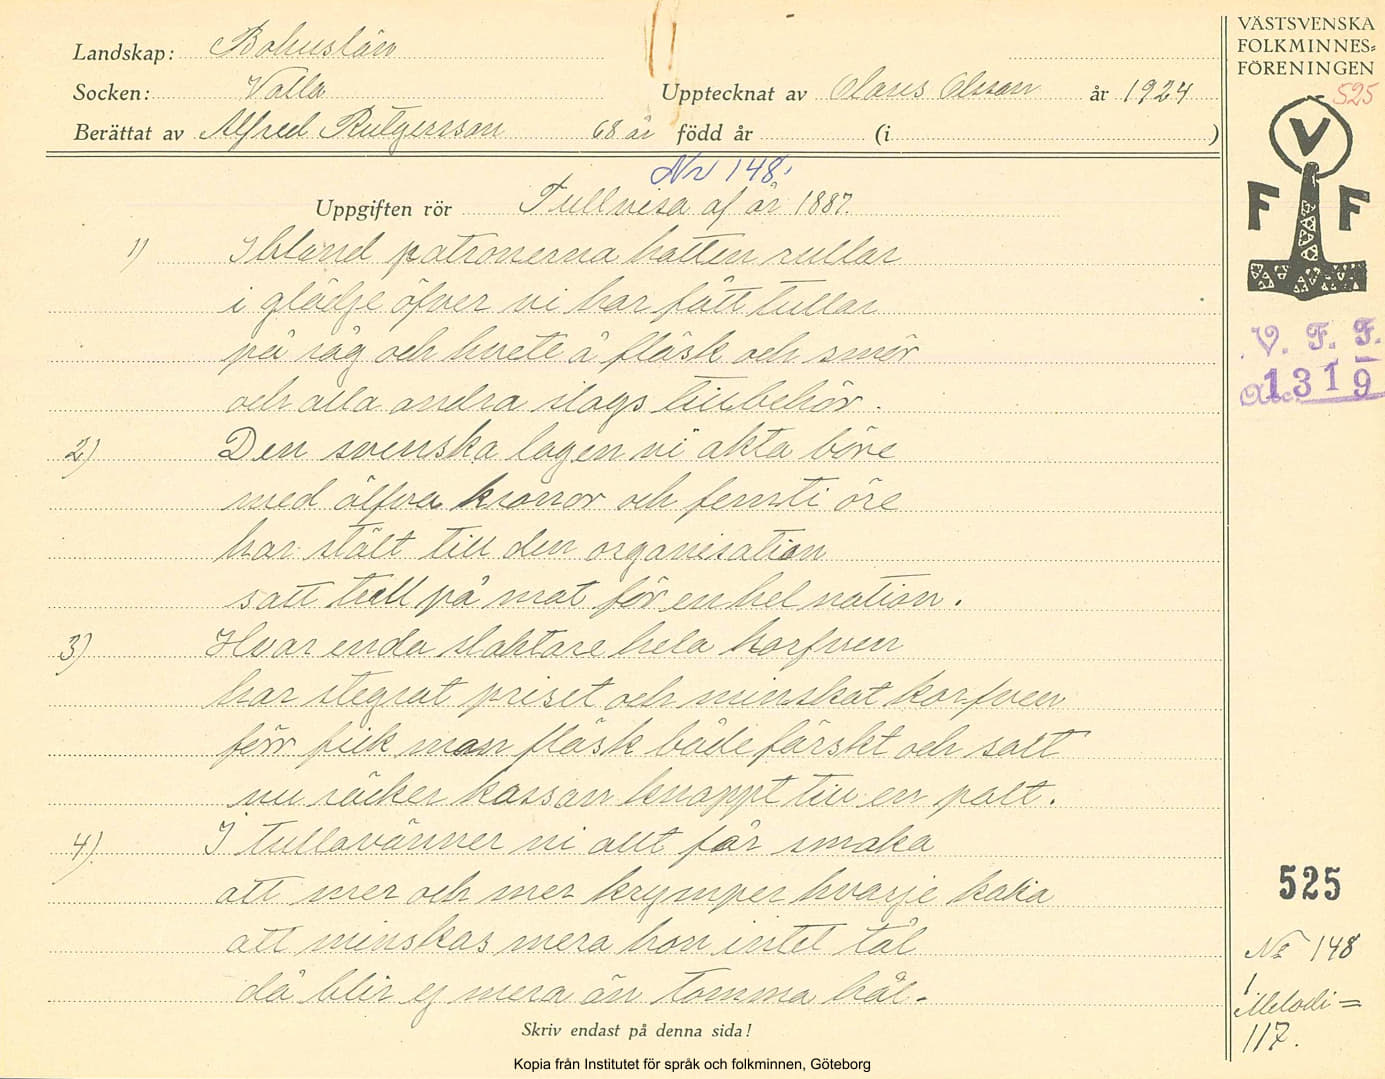 Landskap: Bohuslän
Socken: Valla
Upptecknat av Olans Olsson år 1924
Berättat av Alfred Rutgersson 68 år född år (i )
Nr 148.
Uppgiften rör Tullvisa af år 1887.
1) Ibland patronerna hatten rullar
i glädje öfver vi har fått tullar
på råg och hvete å fläsk och smör
och alla andra slags tillbehör.
2) Den svenska lagen vi akta böre
med älfva kronor och femti öre
har stält till den organisation
satt tull på mat för en hel nation.
3) Hvar enda slaktare hela korfven
har stegrat priset och minskat korfven
förr fick man fläsk både färskt och salt
nu räcker kassan knappt till en palt.
4) I tullavänner ni allt får smaka
att mer och mer krymper hvarje kaka
att minskas mera hon intet tål
då blir ej mera än tomma hål.
Skriv endast på denna sida!
Kopia från Institutet för språk och folkminnen, Göteborg
VÄSTSVENSKA
FOLKMINNES=
FÖRENINGEN
525
V
F F
V. F. F.
Acc. 1319
525
Nr 148
Melodi =
117.